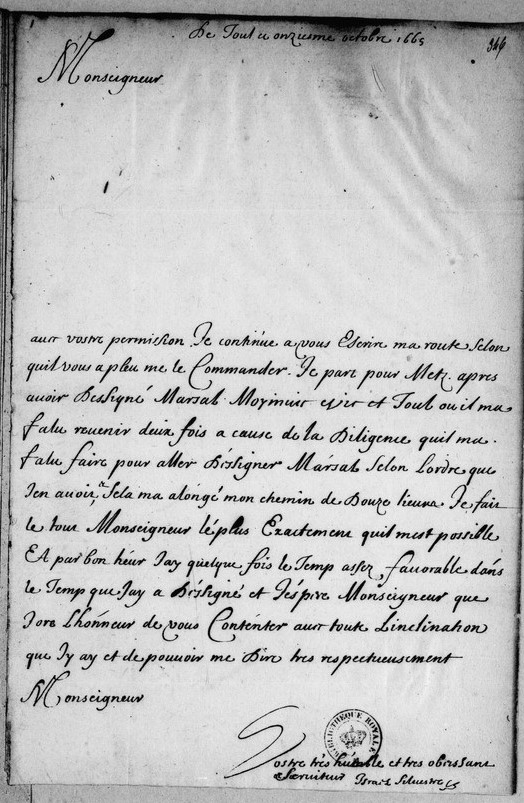 De Toul ce onziesme octobre 1665
346
Monseigneur
avec vostre permission Je continue a vous Escrire ma route selon
quil vous a pleu me le Commander. Je part pour Metz. apres
avoir Dessigné Marsal Moyenvic et Toul ou il ma
falu revenir deux fois a cause de la Diligence quil ma.
falu faire pour aller Dessigner Marsal selon Lordre que
Jen avois, sela ma alongé mon chemin de Douze lieues. Je fait
le tout Monseigneur le plus Exactement quil mest possible
Et par bon heur Jay quelque fois le Temp assez favorable dans
le Temp que Jay a Dessigné et Jespere Monseigneur que
Jore Lhonneur de vous Contenter avec toute Linclination
que Jy ay et de pouvoir me Dire tres respectueusement
Monseigneur
BIBLIOTHEQUE ROYALE
Vostre tres humble et tres obeissant
serviteur Israel Silvestre